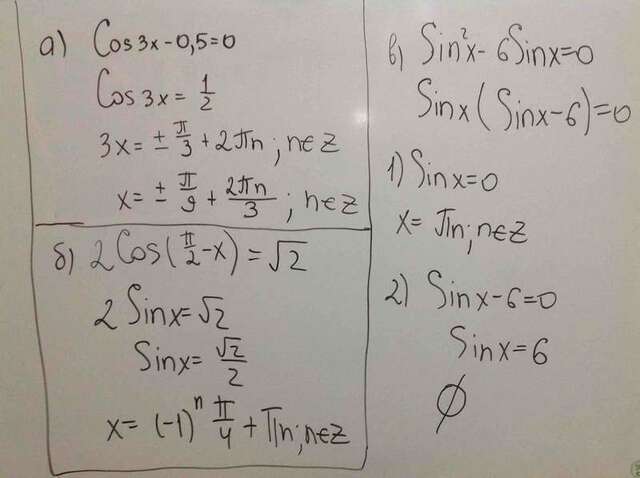 а) Cos3x-0,5=0
Cos3x=1/2
3x=±π/3+2πn; n∈Z
x=±π/9+2πn/3; n∈Z
б) 2Cos(π/2-x)=√2
2Sinx=√2
Sinx=√2/2
x=(-1)ⁿ π/4+πn; n∈Z
в) Sin²x-6Sinx=0
Sinx(Sinx-6)=0
1) Sinx=0
x=πn; n∈Z
2) Sinx-6=0
Sinx=6
∅